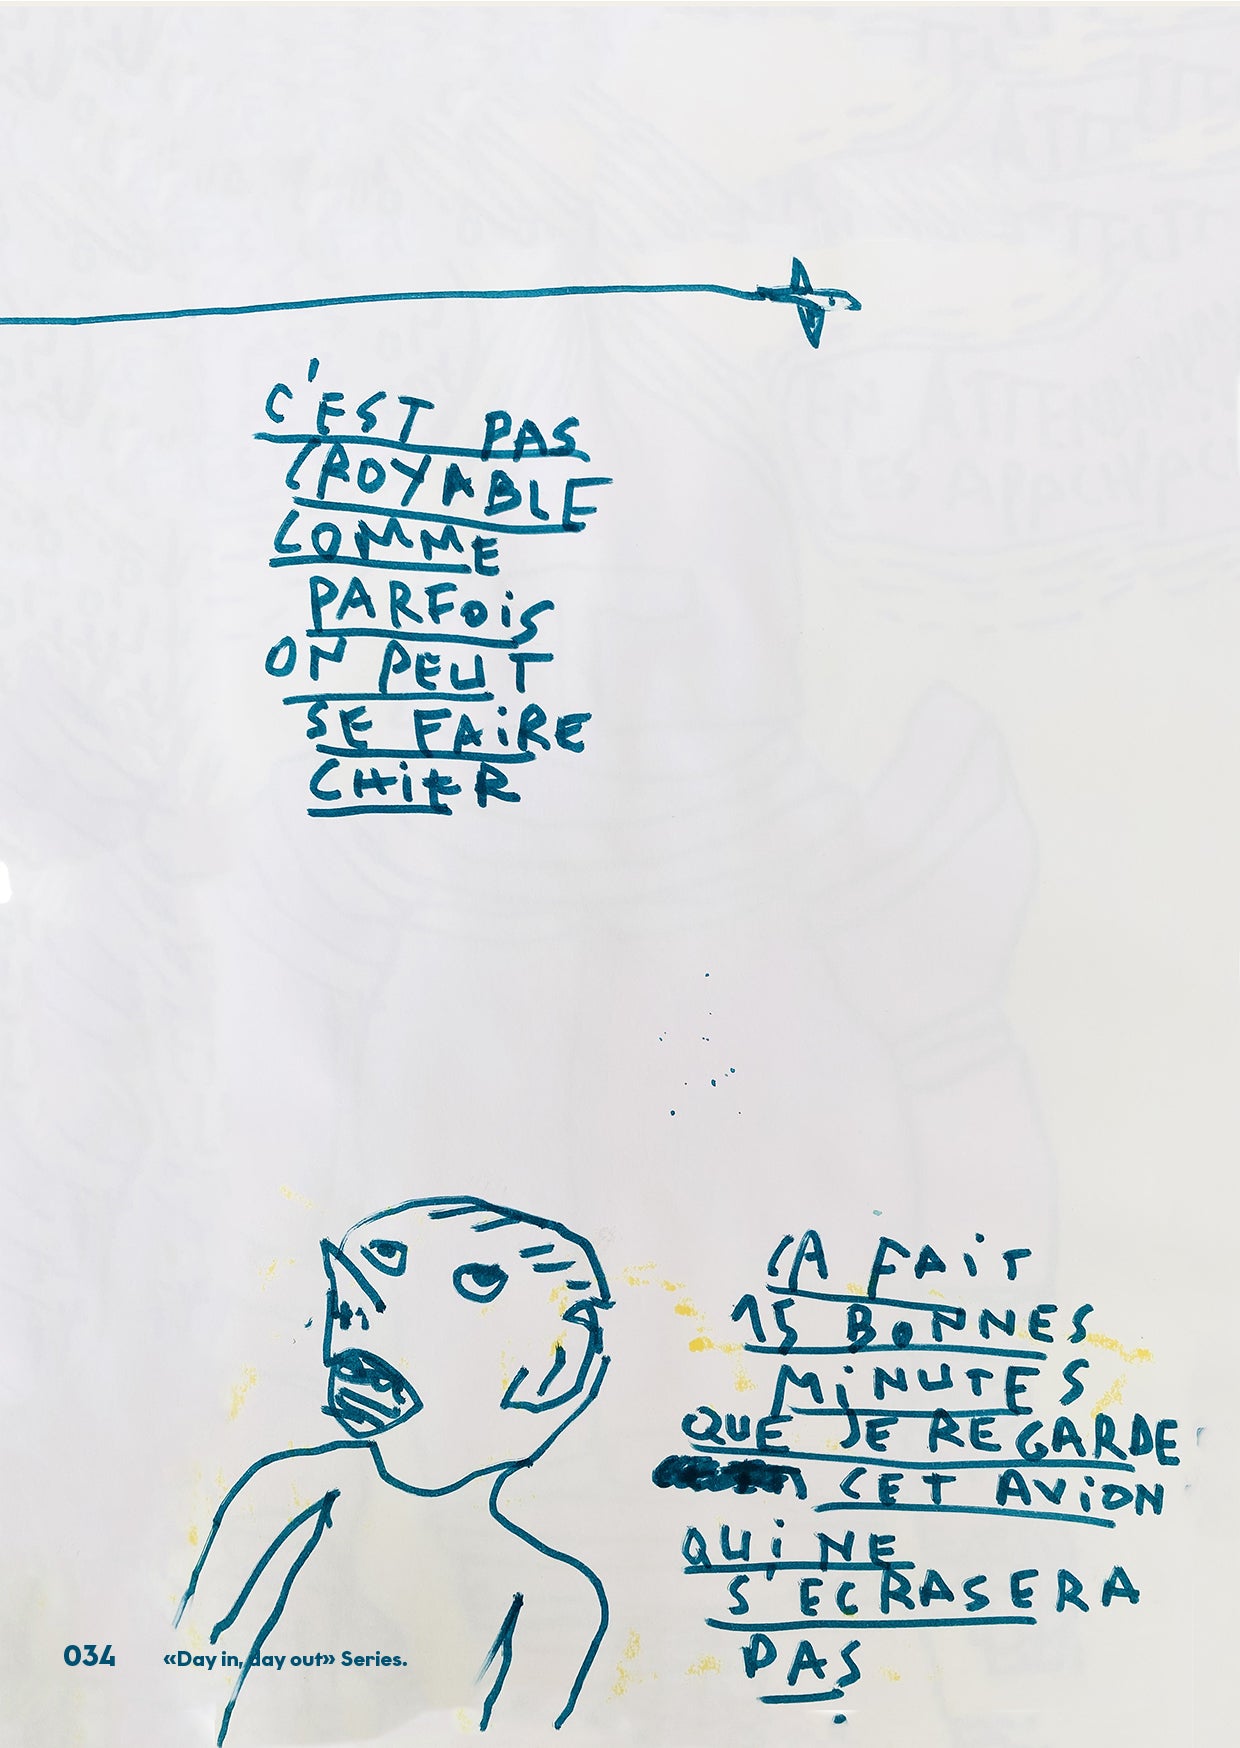 C'EST PAS
CROYABLE
COMME
PARFOiS
ON PEUT
SE FAiRE
CHiER
CA FAiT
15 BONNES
MiNUTES
QUE JE REGARDE
CET AViON
QUi NE
S'ECRASERA
PAS.
034 «Day in, day out» Series.